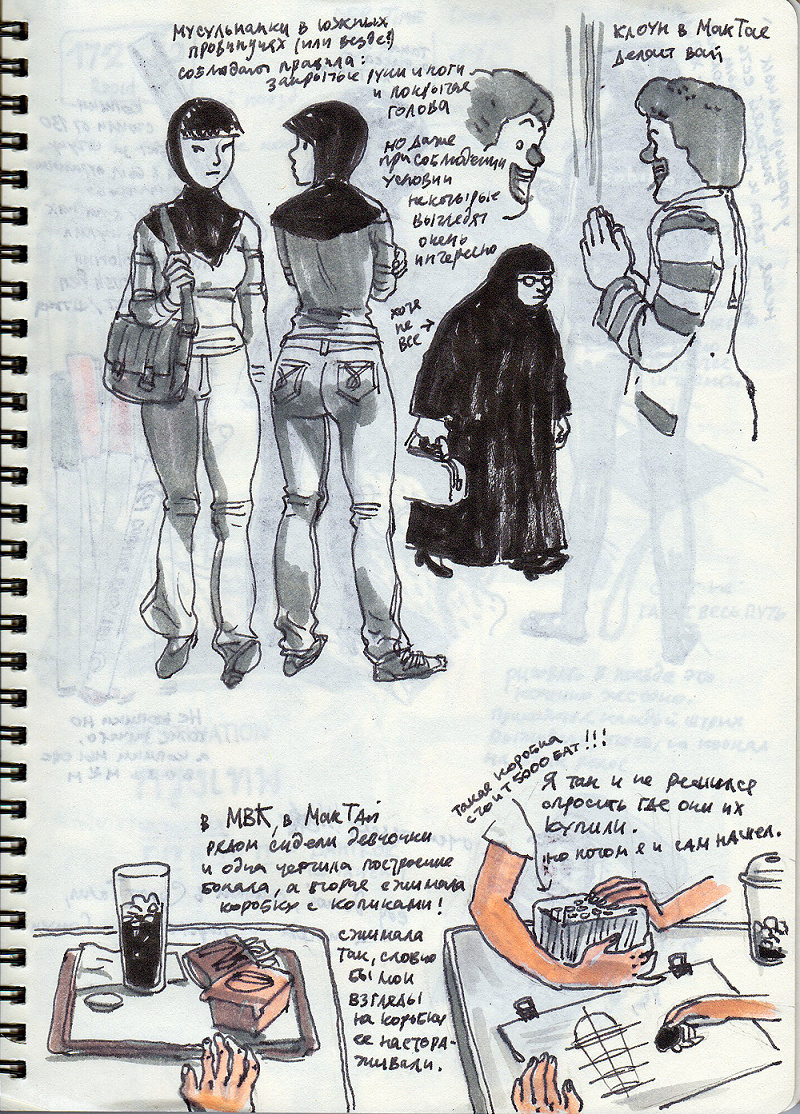 мусульманки в южных
провинциях (или везде?)
соблюдают правила:
закрытые руки и ноги
и покрытая
голова
но даже
при соблюдении
условии
некоторые
выглядят
очень
интересно
хотя
не
все
клоун в МакТае
делает вай
в МВК, в МакТай
рядом сидели девчонки
и одна чертила построение
бокала, а вторая сжимала
коробку с копиками!
сжимала
так, словно
бы мои
взгляды
на коробку
ее настора-
живали.
такая коробка
стоит 5000 бат!!!
Я так и не решился
спросить где они их
купили.
но потом я и сам нашел.
172
Не копики но
тоже ничего,